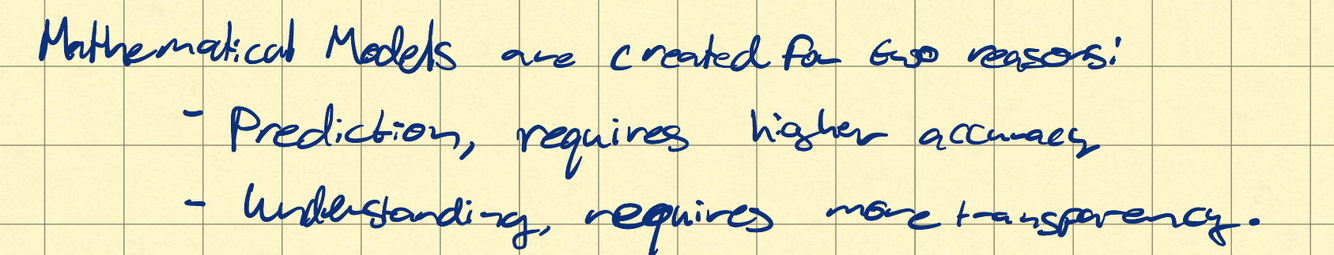 Mathematical Models are created for two reasons:
- Prediction, requires higher accuracy
- Understanding, requires more transparency.